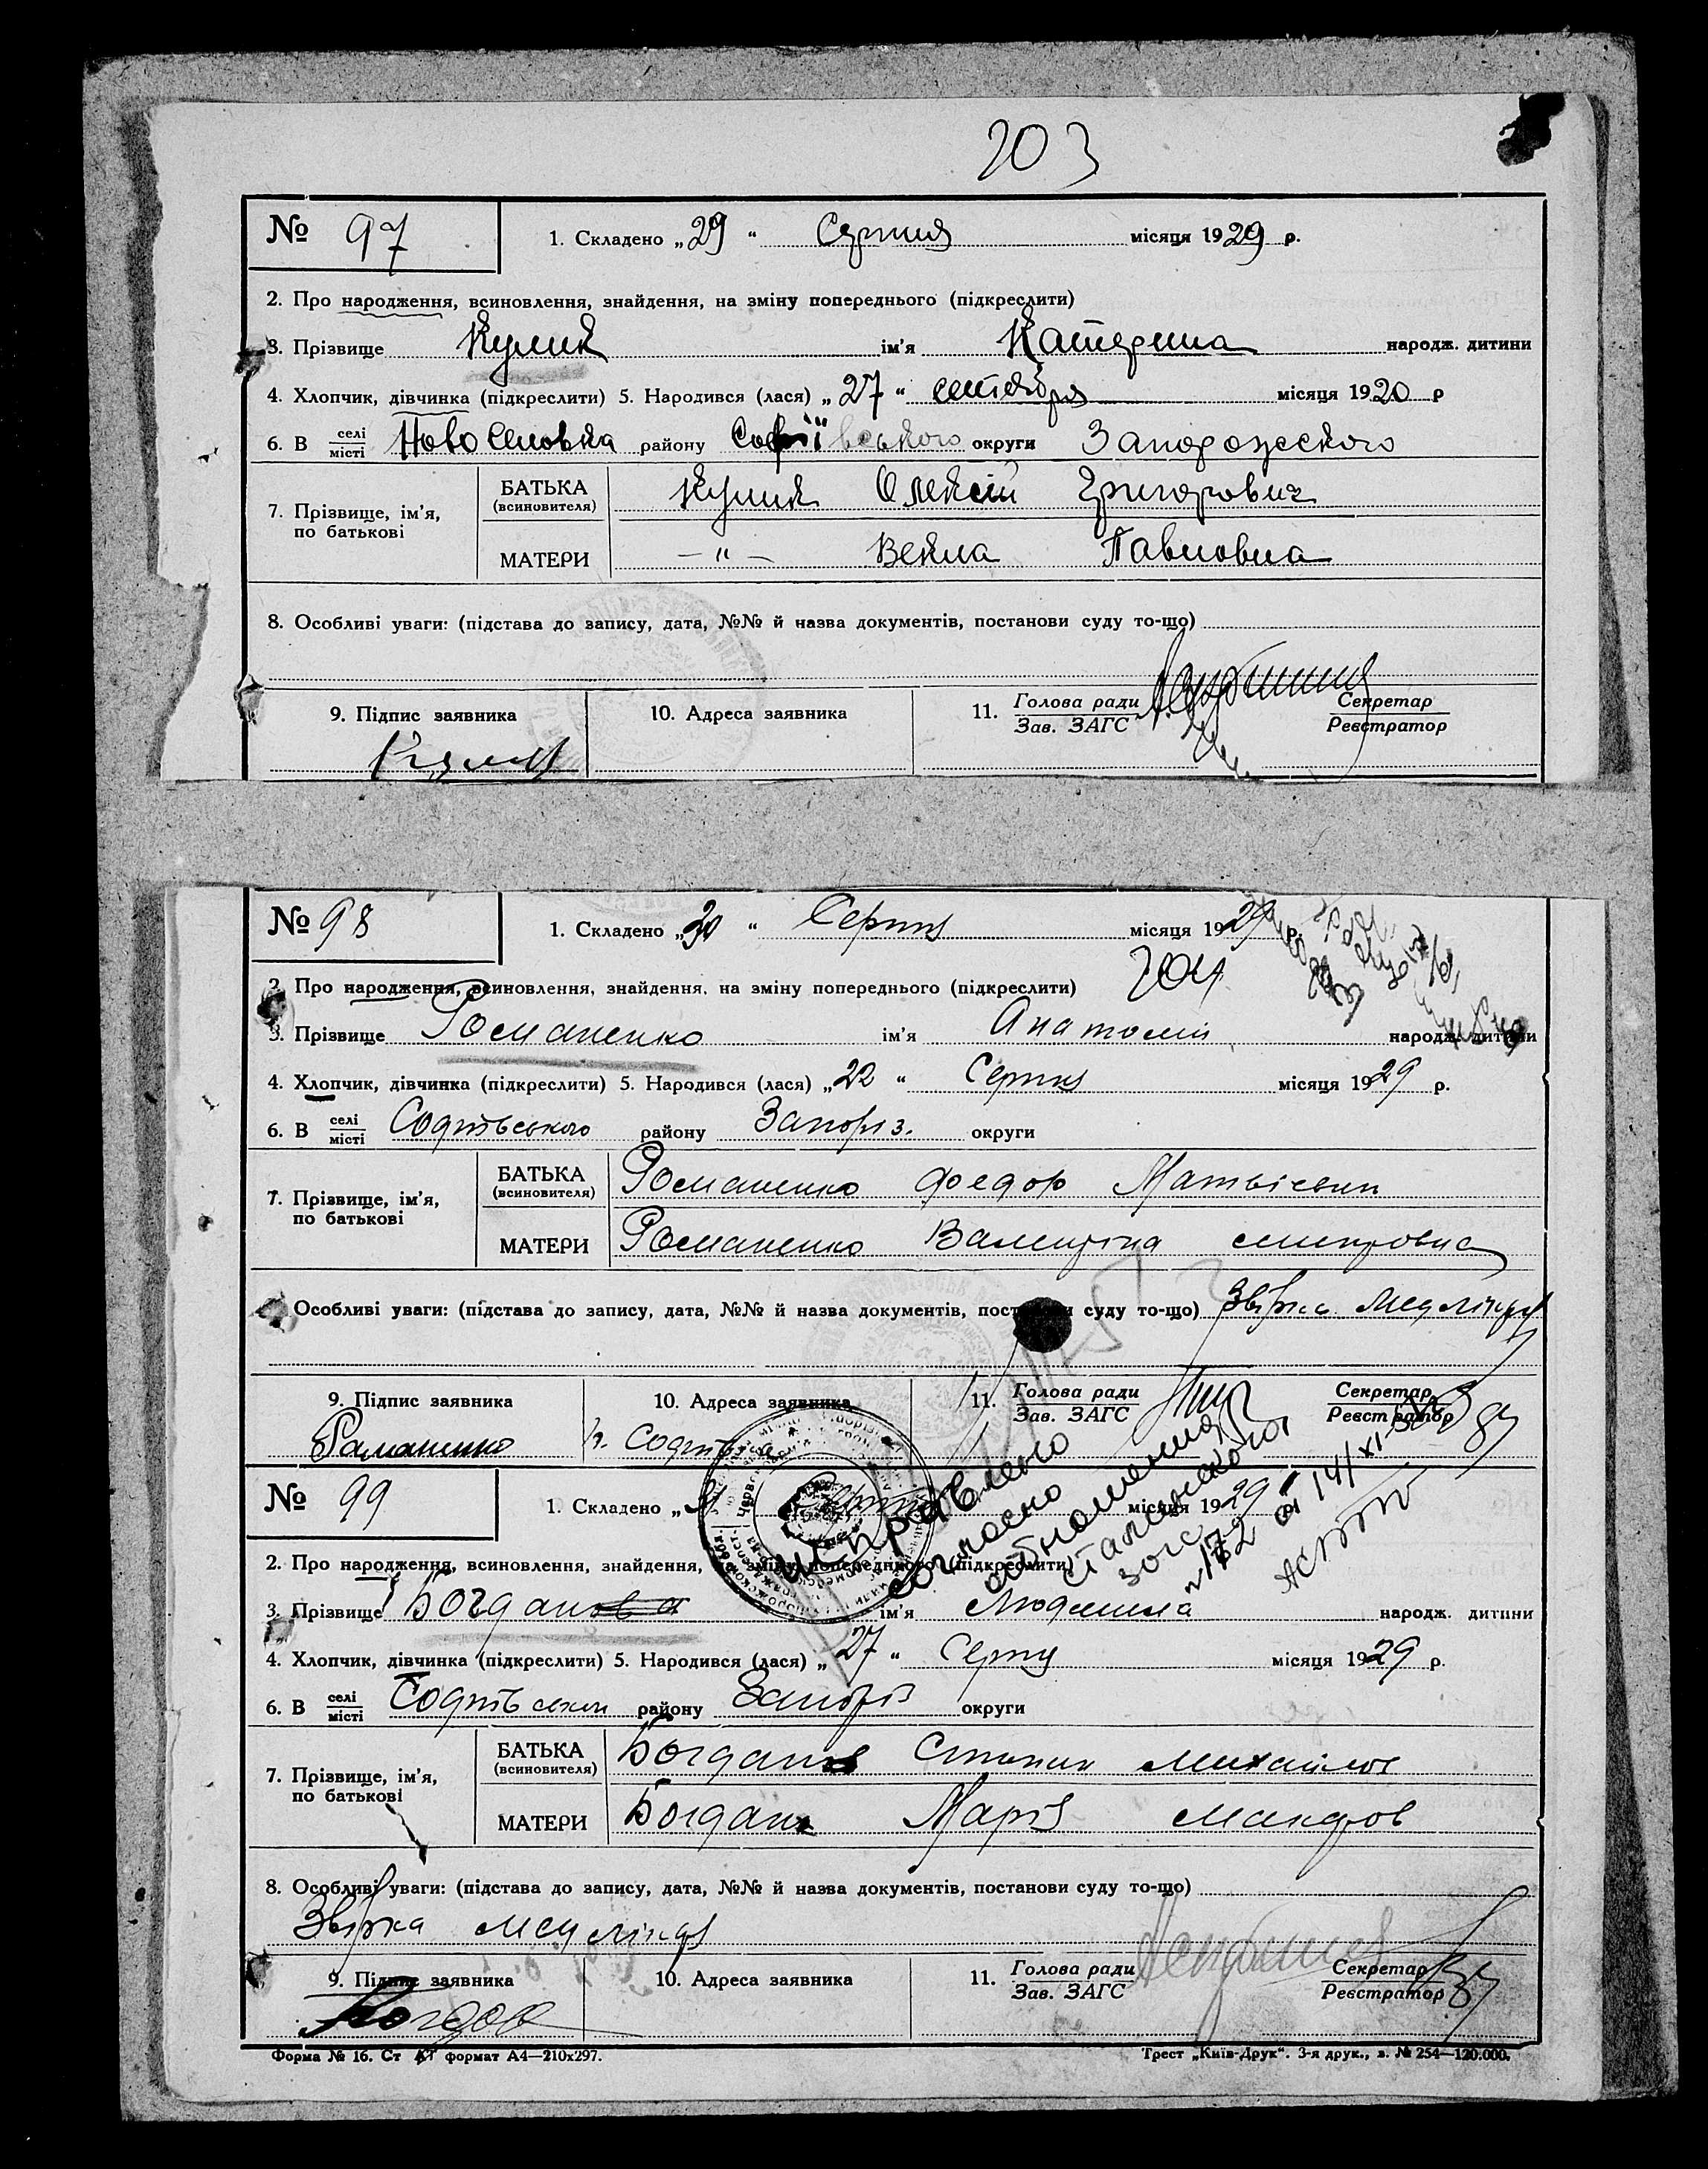 203
№ 97 1. Складено „29“ Серпня місяця 1929 р.
2. Про народження, всиновлення, знайдення, на зміну попереднього (підкреслити)
3. Прізвище Кулик ім'я Катерина народж. дитини
4. Хлопчик, дівчинка (підкреслити) 5. Народився (лася) „27“ сентября місяця 1920 р
6. В селі місті НовоСеловка району Софіївського округи Запорожського
7. Прізвище, ім'я, по батькові
БАТЬКА (всиновителя) Кулик Олексій Григорович
МАТЕРИ —"— Векла Павловна
8. Особливі уваги: (підстава до запису, дата, №№ й назва документів, постанови суду то-що)
9. Підпис заявника 10. Адреса заявника 11. Голова ради Зав. ЗАГС Секретар Реєстратор
Кулик
№ 98 1. Складено „30“ Серпня місяця 1929 р.
204
2. Про народження, всиновлення, знайдення, на зміну попереднього (підкреслити)
3. Прізвище Романенко ім'я Анатолій народж. дитини
4. Хлопчик, дівчинка (підкреслити) 5. Народився (лася) „22“ Серпня місяця 1929 р.
6. В селі місті Софіївського району Запоріз. округи
7. Прізвище, ім'я, по батькові
БАТЬКА (всиновителя) Романенко Федор Матвієвич
МАТЕРИ Романенко Валентіна
Особливі уваги: (підстава до запису, дата, №№ й назва документів, постанови суду то-що) Звірка
9. Підпис заявника 10. Адреса заявника 11. Голова ради Зав. ЗАГС Секретар Реєстратор
Романенко с. Софіївка
исправлено согласно отношения Сталинского загс №172 от 14/XI
№ 99 1. Складено „31 Серпня місяця 1929 р
2. Про народження, всиновлення, знайдення, на зміну попереднього (підкреслити)
3. Прізвище Богданова ім'я Людмила народж. дитини
4. Хлопчик, дівчинка (підкреслити) 5. Народився (лася) „27“ Серпня місяця 1929 р.
6. В селі місті Софіївськом району Запоріз округи
7. Прізвище, ім'я, по батькові
БАТЬКА (всиновителя) Богдан Степан Михайлов
МАТЕРИ Богдан Марія
8. Особливі уваги: (підстава до запису, дата, №№ й назва документів, постанови суду то-що)
Звірка
9. Підпис заявника 10. Адреса заявника 11. Голова ради Зав. ЗАГС Секретар Реєстратор
Форма № 16. Ст формат А4—210х297. Трест „Київ-Друк“. 3-я друк., з. № 254—120.000.